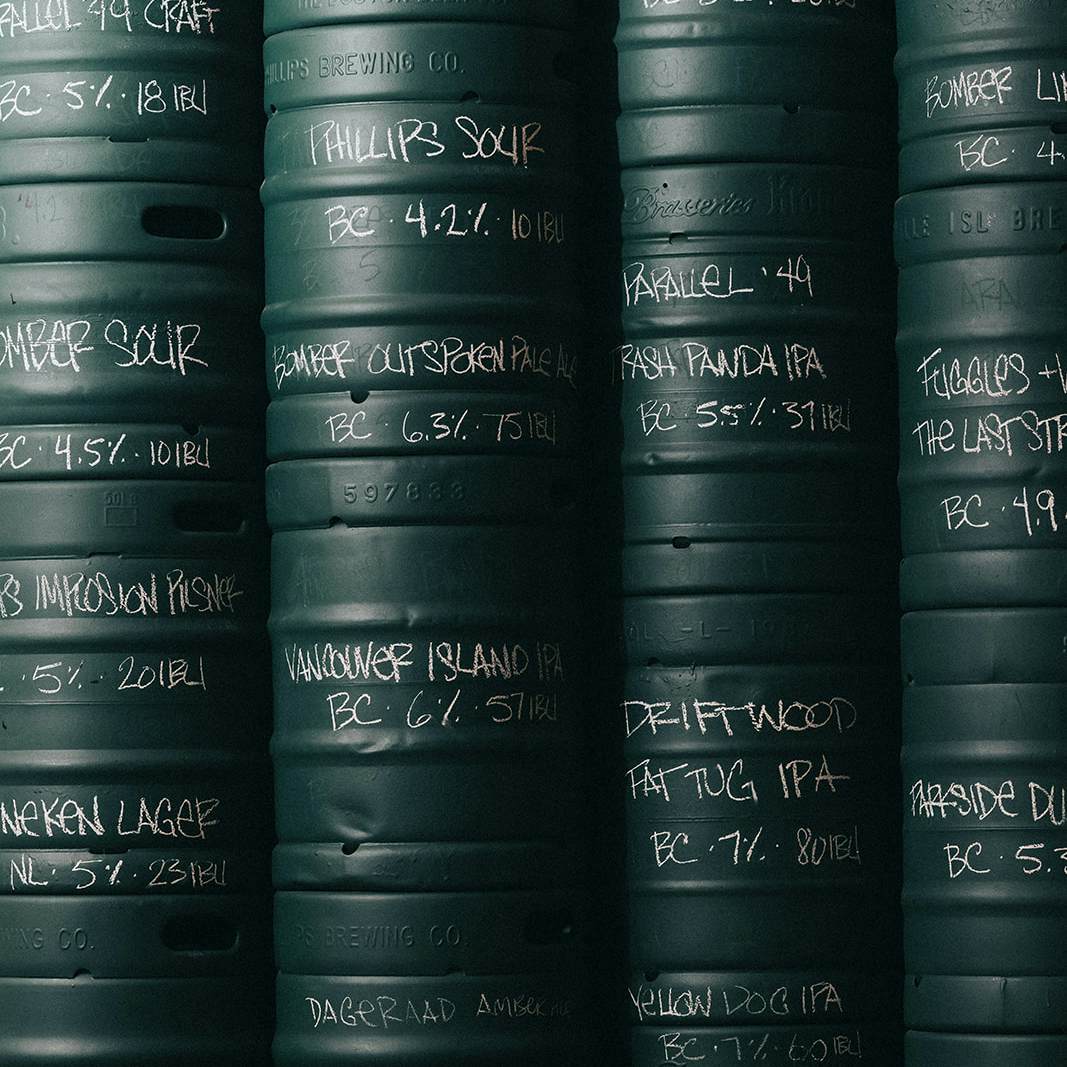 PARALLEL 49 CRAFT
BC · 5% · 18 IBU
BOMBER SOUR
BC · 4.5% · 10 IBU
IMPLOSION PILSNER
5% · 20 IBU
LAGER
NL · 5% · 23 IBU
CO.
PHILLIPS BREWING CO.
PHILLIPS SOUR
BC · 4.2% · 10 IBU
BOMBER OUTSPOKEN PALE ALE
BC · 6.3% · 75 IBU
597833
VANCOUVER ISLAND IPA
BC · 6% · 57 IBU
BREWING CO.
DAGERAAD AMBER ALE
Brasseries
PARALLEL · 49
TRASH PANDA IPA
BC · 5.5% · 37 IBU
DRIFTWOOD
FAT TUG IPA
BC · 7% · 80 IBU
YELLOW DOG IPA
BC · 7% · 60 IBU
BOMBER
BC · 4.
ISL BRE
FUGGLES +
THE LAST
BC · 4.9
PARKSIDE
BC · 5.3